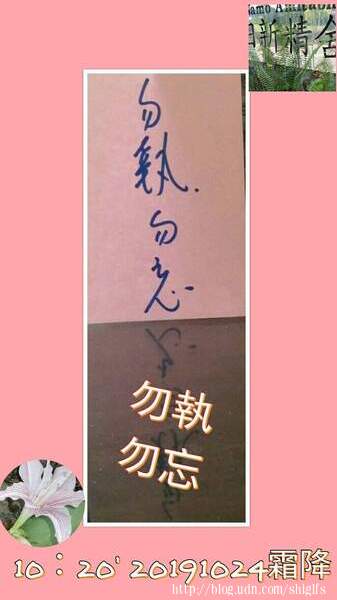 Namo Amitabh
日新精舍
勿
執.
勿
忘
勿執
勿忘
10：20' 20191024霜降
http://blog.udn.com/shiglfs